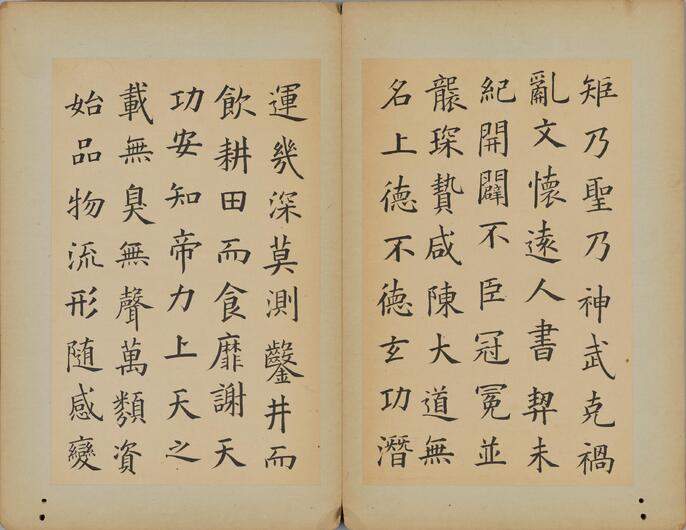 矩乃聖乃神武克禍
亂文懷遠人書契未
紀開闢不臣冠冕並
襲琛贄咸陳大道無
名上德不德玄功潛
運幾深莫測鑿井而
飲耕田而食靡謝天
功安知帝力上天之
載無臭無聲萬類資
始品物流形隨感變